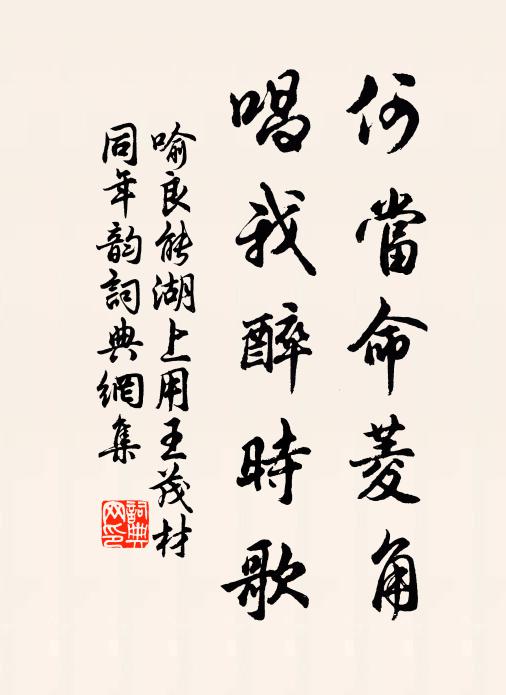 何當命菱角
唱我醉時歌
喻良能湖上用王茂材
同年韵詞典網集
詞典网印